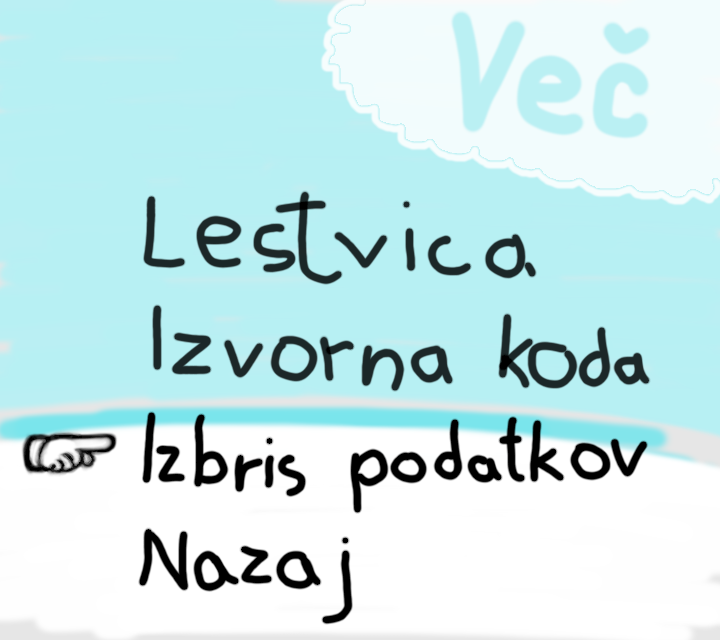 Več
Lestvica
Izvorna koda
Izbris podatkov
Nazaj